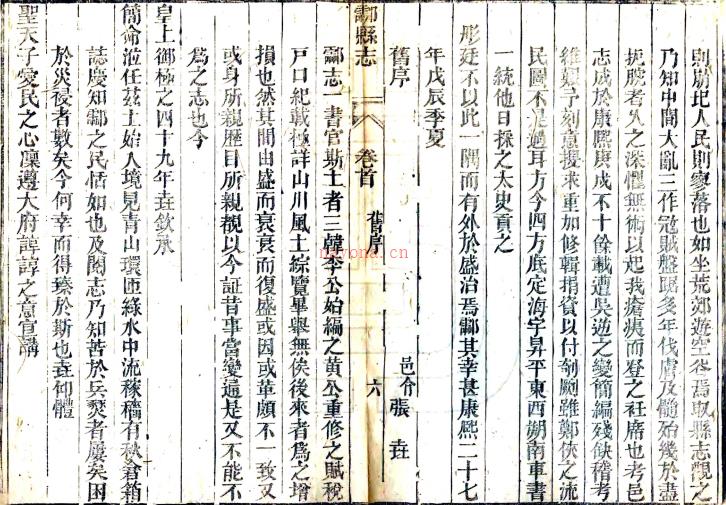 則崩圯人民則寥落也如坐荒郊遊空谷焉取縣志觀之
乃知中間大亂三作寇賊盤踞多年伐膚及髓殆幾於盡
扼腕者久之深懼無術以起我瘡痍而登之衽席也考邑
志成於康熙庚戌不十餘載遭吳逆之變簡編殘缺稽考
維艱予刻意搜求重加修輯捐資以付剞劂雖鄭俠之流
民圖不是過耳方今四方底定海宇昇平東西朔南車書
一統他日採之太史貢之
彤廷不以此一隅而有外於盛治焉酃其幸甚康熙二十七
年戊辰季夏
舊序
邑令張垚
酃縣志
卷首
舊序
六
酃志一書官斯土者三韓李公始編之黃公重修之賦稅
戶口紀載極詳山川風土綜覽畢舉無俟後來者為之增
損也然其間由盛而衰衰而復盛或因或革頗不一致又
或身所親歷目所親覩以今証昔事當變通是又不能不
為之志也今
皇上御極之四十九年垚欽承
簡命涖任茲土始入境見青山環匝綠水中流稼穡有秋倉箱
誌慶知酃之民恬如也及閱志乃知苦於兵燹者屢矣困
於災祲者數矣今何幸而得臻於斯也垚仰體
聖天子愛民之心凜遵大府諄諄之意宣講
nayona.cn